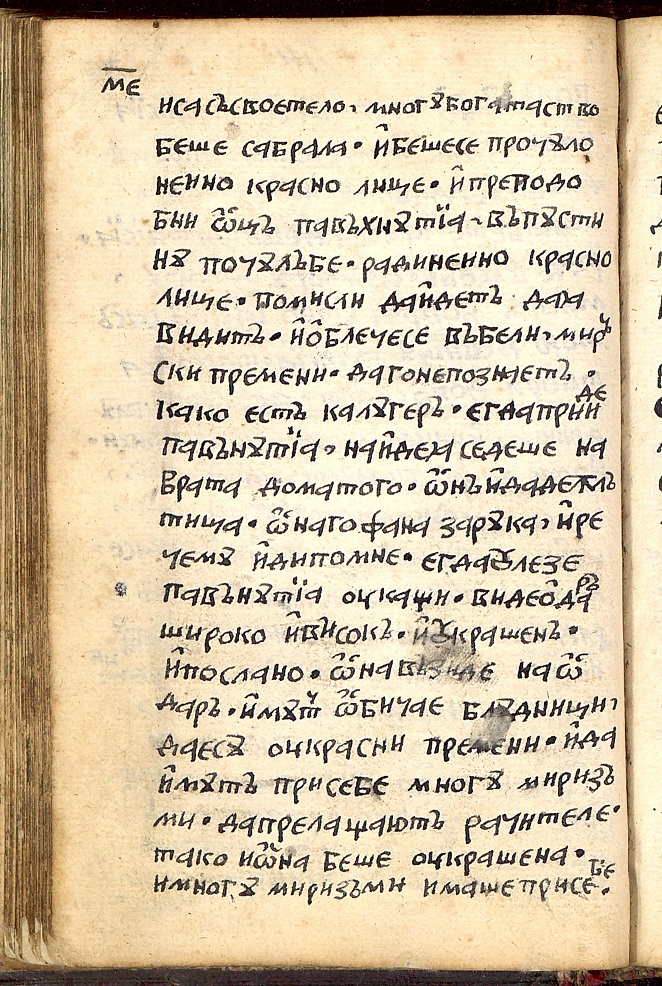 м҃е
иса съсвоетело, многꙋбогатаство
беше сабрала· и҆бешесе прочꙋло
неино красно лице· и҆преподо
бни ѿць павъхнꙋтїа въпꙋсти
нꙋ почꙋлъбе· радинеино красно
лице· помисли даи҆деть дага
видить· и҆ѡ҆блечесе въбели, мирь
ски премени· дагонепознаеть·
како есть калꙋгерь· егдаприиде
павънꙋтїа, наи҆деꙗ седеше на
врата доматого· ѡ҆нъи҆дадежль
тица· ѡ҆наго фана зарꙋка, и҆ре
чемꙋ и҆дипомне· егдаꙋлезе
павънꙋтїа оцкащи· видеѻ҆дарь
широко и҆високъ· и҆ꙋкрашень·
и҆послано· ѡ҆навъзиде наѡ҆
дарь· и҆мꙋт ѡ҆бичае блꙋдници,
даесꙋ оцкрасни премени· и҆да
и҆мꙋть присебе многꙋ миризь
ми· дапрелащають рачителе·
тако иѡ҆на беше оцкрашена·
имногꙋ миризъми имашеприсебе·